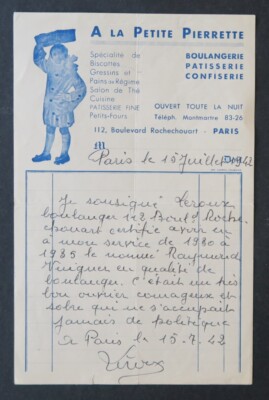 A LA PETITE PIERRETTE
Spécialité de
Biscottes
Gressins et
Pains de Régime
Salon de Thé
Cuisine
PATISSERIE FINE
Petits-fours
BOULANGERIE
PATISSERIE
CONFISERIE
OUVERT TOUTE LA NUIT
Téléph. Montmartre 83-26
112, Boulevard Rochechouart - PARIS
M
Paris le 15 Juillet 1942
Je sousigné Leroux
boulanger 112 Boul. Roche-
chouart certifie avoir eu
à mon service de 1930 à
1935 le nommé Raymond
en qualité de
boulanger. C'était un très
bon ouvrier courageux et
sobre qui ne s'occupait
jamais de politique
à Paris le 15.7.42
Leroux